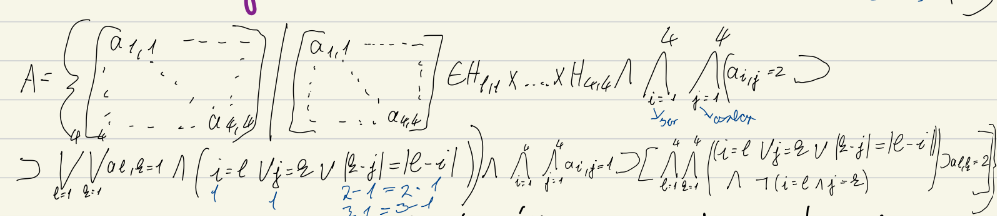 A = { [ a1,1 ---- a4,4 ] | [ a1,1 ---- a4,4 ] ∈ H1,1 × .... × H4,4 ∧ ⋀_{i=1}^{4} ⋀_{j=1}^{4} (ai,j = 2 ⊃
⊃ ⋁_{l=1}^{4} ⋁_{k=1}^{4} al,k = 1 ∧ ( i = l ∨ j = k ∨ |k-j| = |l-i| ) ) ∧ ⋀_{i=1}^{4} ⋀_{j=1}^{4} ai,j = 1 ⊃ [ ⋀_{l=1}^{4} ⋀_{k=1}^{4} ( ( i = l ∨ j = k ∨ |k-j| = |l-i| ) ∧ ¬( i = l ∧ j = k ) ) ⊃ al,k = 2 ] }
1 1 2-1 = 2-1
3-1 = 3-1